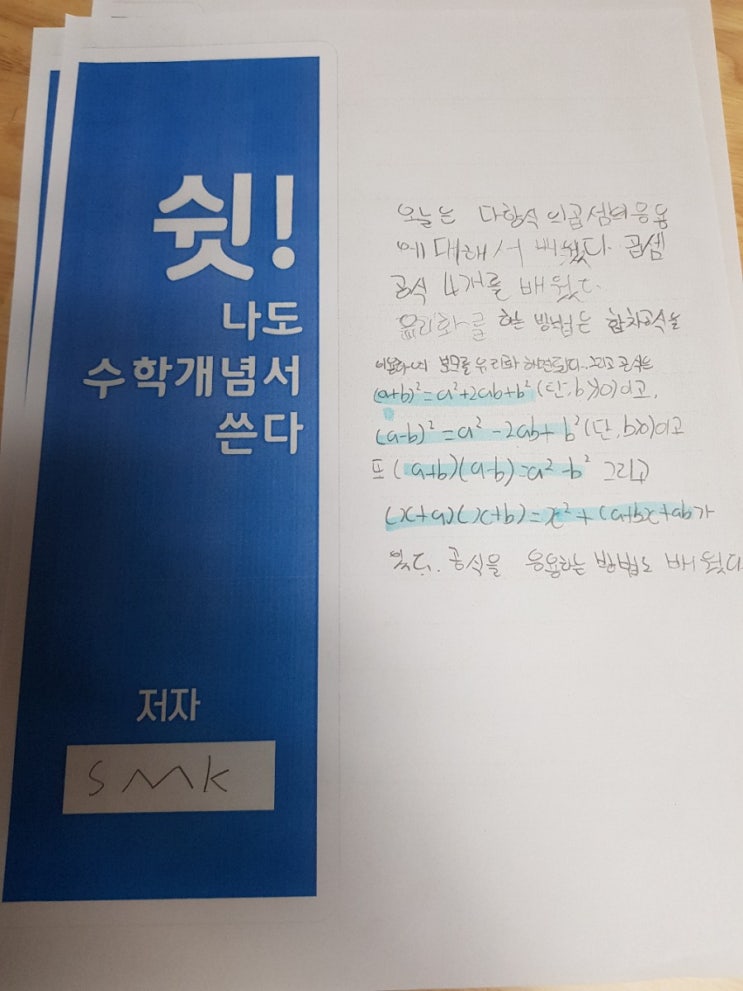 쉿!
나도
수학개념서
쓴다
저자
SMK
오늘은 다항식의곱셈의응용
에 대해서 배웠다. 곱셈
공식 4개를 배웠다.
유리화를 하는 방법은 합차공식을
분모를 유리화 하면된다.. 그리고 공식은
(a+b)²=a²+2ab+b² (단, b>0)이고,
(a-b)²=a²-2ab+b² (단, b>0)이고
또 (a+b)(a-b)=a²-b² 그리고
(x+a)(x+b)=x²+(a+b)x+ab가
있다. 공식을 응용하는 방법도 배웠다